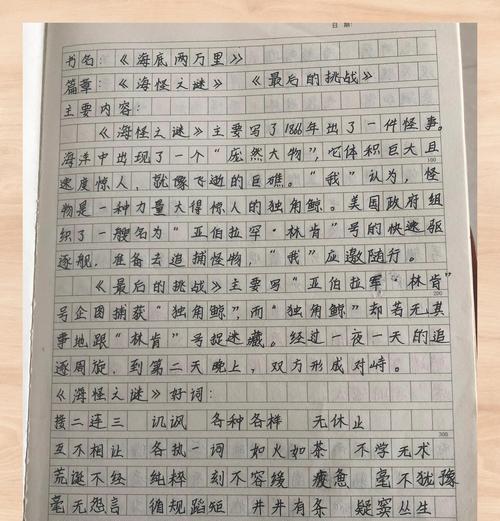 日期:
书名:《海底两万里》
篇章:《海怪之谜》 《最后的挑战》
主要内容:
《海怪之谜》主要写了1866年出了一件怪事。
海洋中出现了一个“庞然大物”,它体积巨大且
100
速度惊人,就像飞逝的巨礁。“我”认为,怪
物是一种力量大得惊人的独角鲸。美国政府组
织了一艘名为“亚伯拉罕·林肯”号的快速驱
逐舰,准备去追捕怪物,“我”应邀随行。
《最后的挑战》主要写“亚伯拉罕“林肯”
200
号企图捕获“独角鲸”,而“独角鲸”却若无其
事地跟“林肯”号捉迷藏。经过一夜一天的追
逐周旋,到第二天晚上,双方形成对峙。
《海怪之谜》好词:
接二连三 讥讽 各种各样 无休止
300
互不相让 各执一词 如火如荼 不学无术
荒诞不经 纯粹 刻不容缓 疲惫 毫不犹豫
毫无怨言 循规蹈矩 井井有条 疑窦丛生